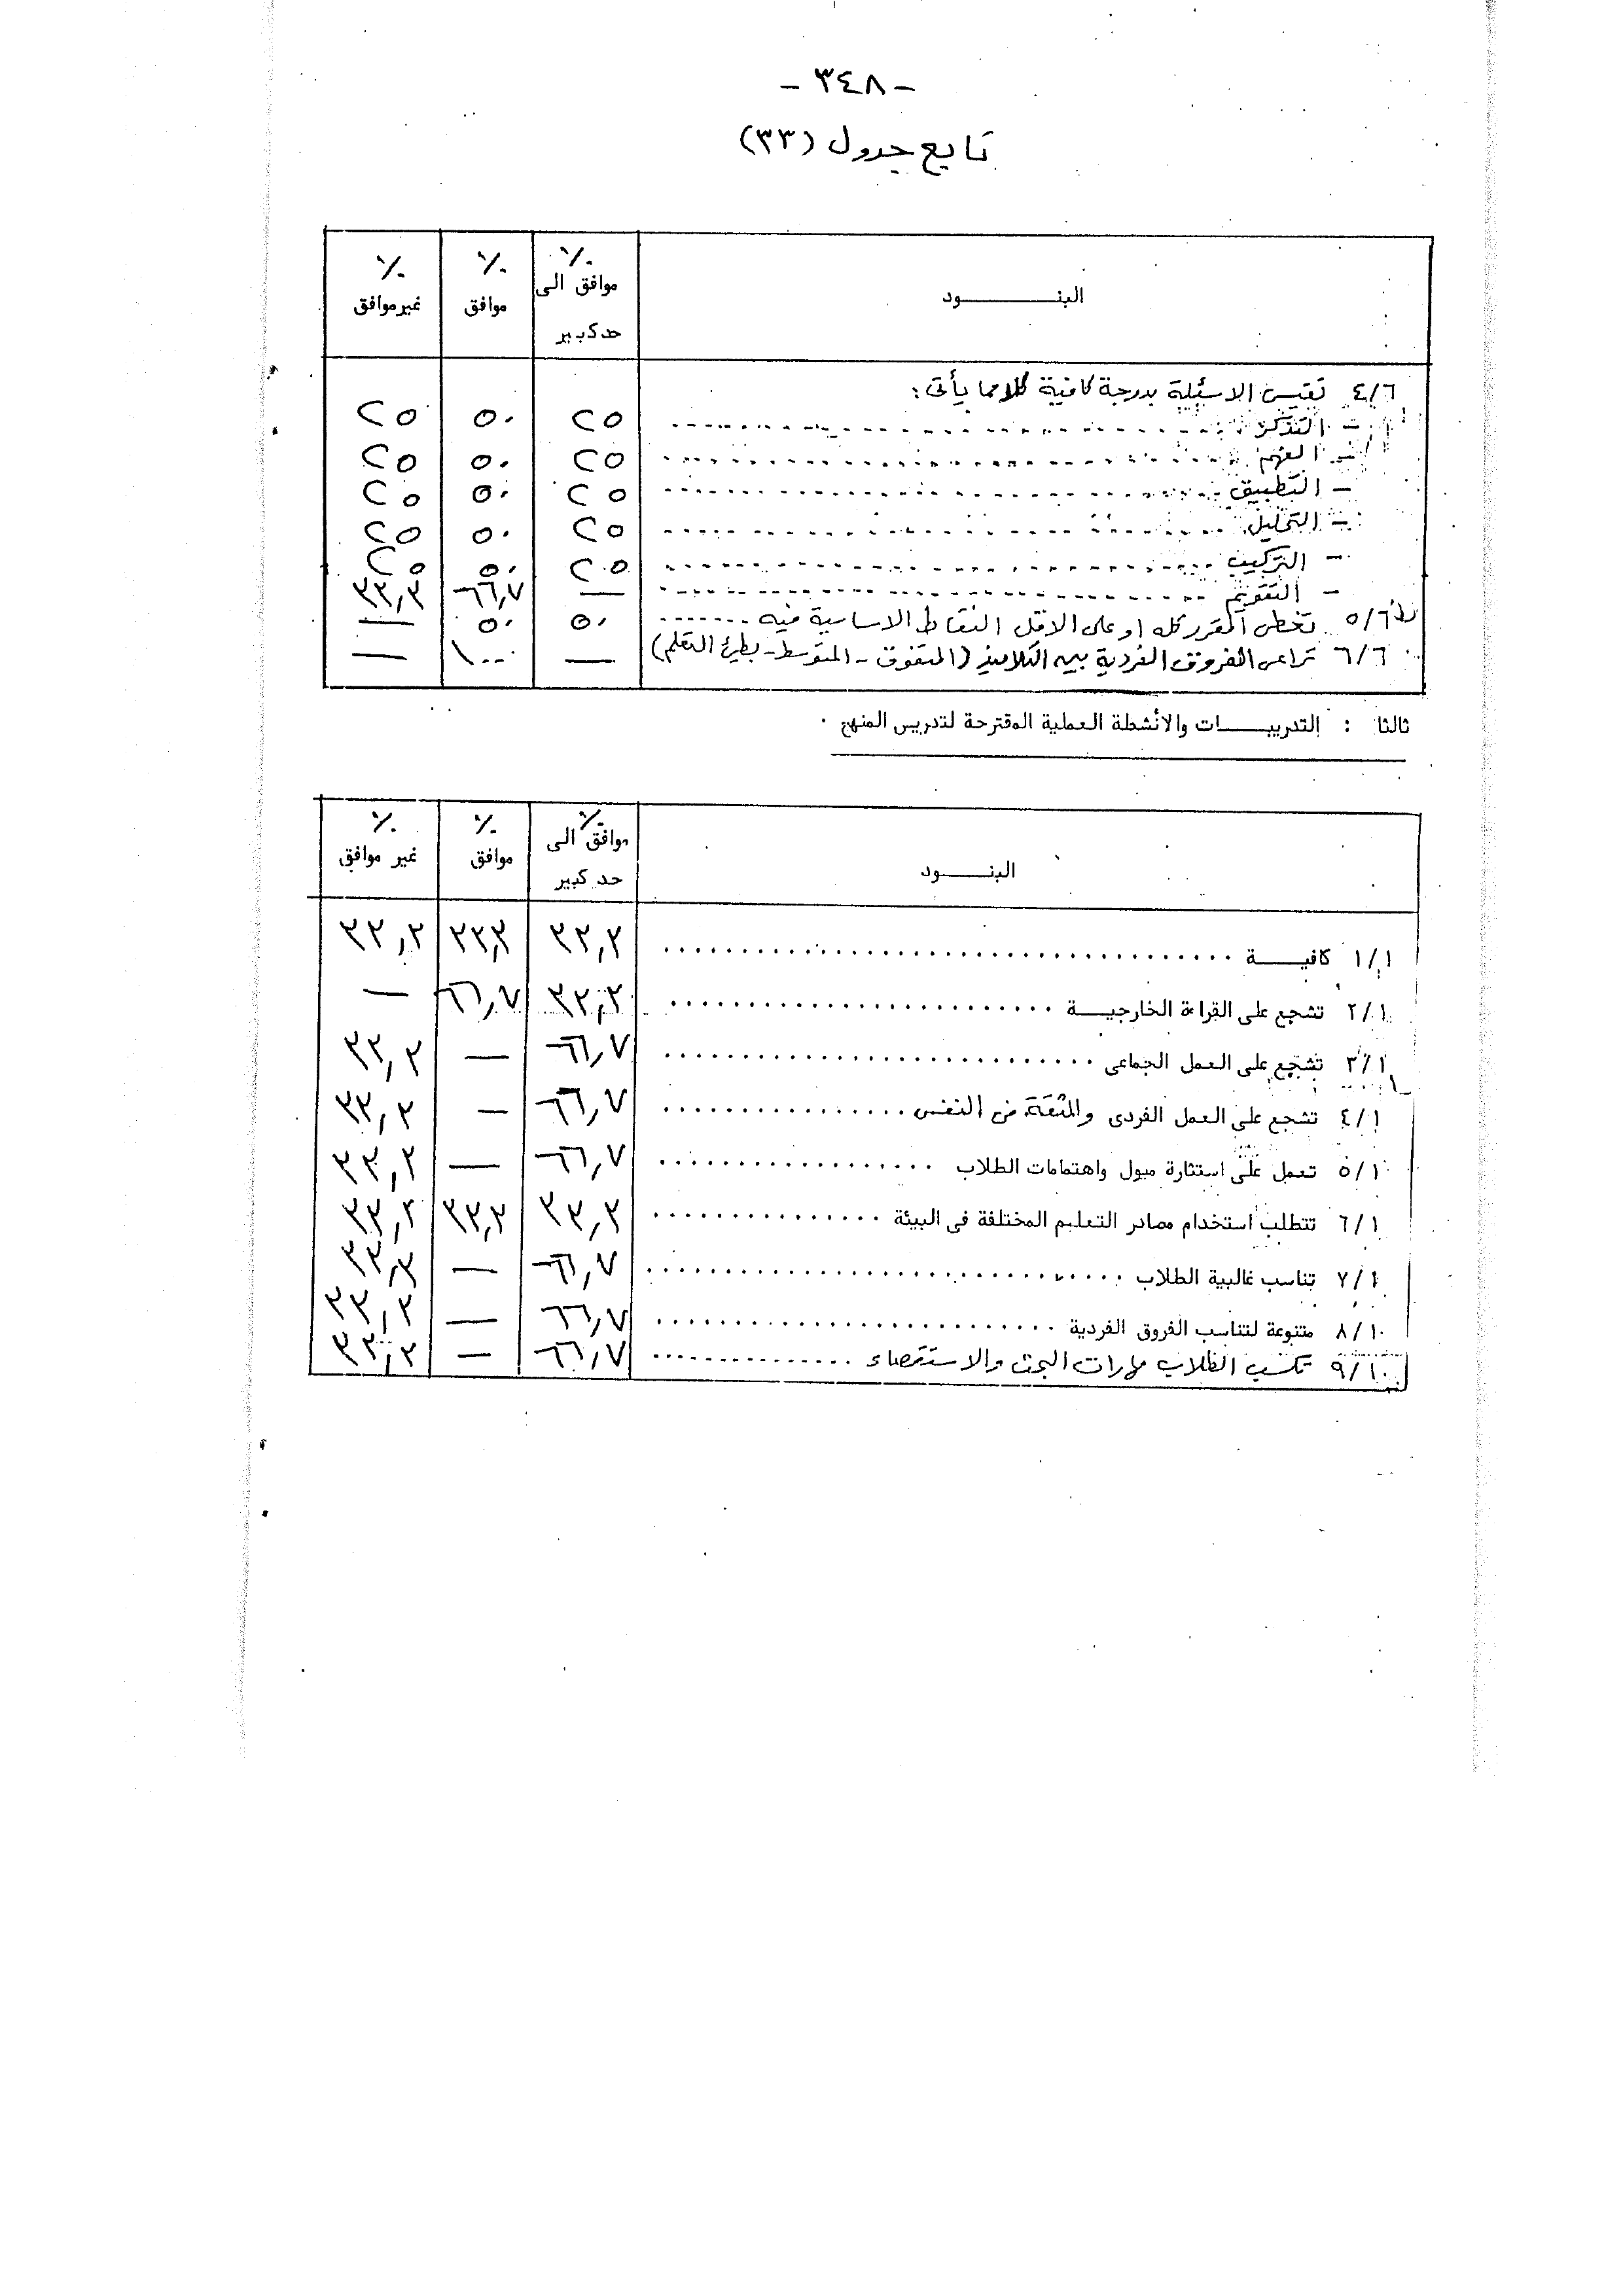 - ٣٤٨ -
تابع جدول (٣٣)
البنــــــود	٪ موافق الى حد كبير	٪ موافق	٪ غير موافق
٤/٦ تقيس الاسئلة بدرجة كافية كلا مما يأتى :
- التذكر	٢٥	٥٠	٢٥
- الفهم	٢٥	٥٠	٢٥
- التطبيق	٢٥	٥٠	٢٥
- التحليل	٢٥	٥٠	٢٥
- التركيب	٢٥	٥٠	٢٥
- التقويم	—	٦٦,٧	٣٣,٣
٥/٦ تغطى المقرر كله او على الاقل النقاط الاساسية فيه	٥٠	٥٠	—
٦/٦ تراعى الفروق الفردية بين التلاميذ (المتفوق - المتوسط - بطئ التعلم)	—	١٠٠	—
ثالثا : التدريبـــات والأنشطة العملية المقترحة لتدريس المنهج .
البنــــود	٪ موافق الى حد كبير	٪ موافق	٪ غير موافق
١/١ كافيـــة	٣٣,٣	٣٣,٣	٣٣,٣
٢/١ تشجع على القراءة الخارجيـــة	٣٣,٣	٦٦,٧	—
٣/١ تشجع على العمل الجماعى	٦٦,٧	—	٣٣,٣
٤/١ تشجع على العمل الفردى والثقة فى النفس	٦٦,٧	—	٣٣,٣
٥/١ تعمل على استثارة ميول واهتمامات الطلاب	٦٦,٧	—	٣٣,٣
٦/١ تتطلب استخدام مصادر التعليم المختلفة فى البيئة	٣٣,٣	٣٣,٣	٣٣,٣
٧/١ تناسب غالبية الطلاب	٦٦,٧	—	٣٣,٣
٨/١ متنوعة لتناسب الفروق الفردية	٦٦,٧	—	٣٣,٣
٩/١ تكسب الطلاب مهارات البحث والاستقصاء	٦٦,٧	—	٣٣,٣